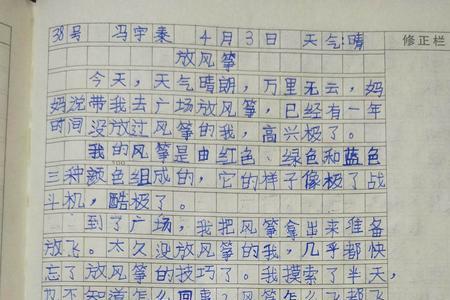 38号 冯宇秦 4月3日 天气:晴
修正栏
放风筝
今天,天气晴朗,万里无云,妈
妈说带我去广场放风筝,已经有一年
时间没放过风筝的我,高兴极了。
我的风筝是由红色、绿色和蓝色
100
三种颜色组成的,它的样子像极了战
斗机,酷极了。
到了广场,我把风筝拿出来准备
放飞。太久没放风筝的我,几乎都快
忘了放风筝的技巧了。我摸索了半天,
也不知道怎么回事?风筝怎么飞都飞